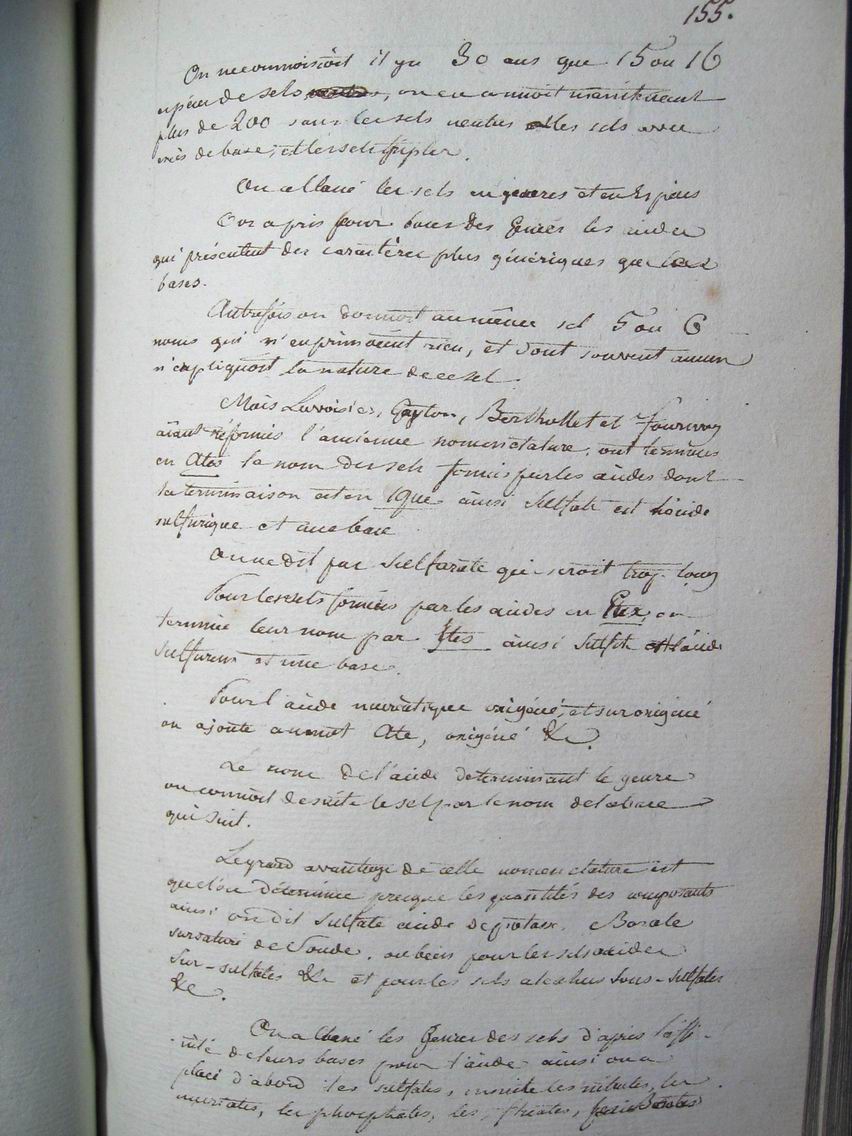 155.
On ne connoissoit il y a 30 ans que 15 ou 16
espèces de sels, on en connoit maintenant
plus de 200 sans les sels neutres les sels avec
excès de base, et les sels triples.
On a classé les sels en genres et en Espèces
On a pris pour bases des Genres les acides
qui présentent des caractères plus génériques que les
bases.
Autrefois on donnoit au même sel 5 ou 6
noms qui n'exprimoient rien, et dont souvent aucun
n'expliquoit la nature de ce sel.
Mais Lavoisier, Guyton, Berthollet et Fourcroy
aiant réformés l'ancienne nomenclature, ont terminés
en Ates le nom des sels formés par les acides dont
la terminaison est en ique ainsi Sulfate est l'acide
sulfurique et une base
On ne dit pas Sulfurate qui seroit trop long
Pour les sels formés par les acides en Eux, on
termine leur nom par Ites ainsi Sulfite est l'acide
sulfureux et une base.
Pour l'acide muriatique oxigéné, et suroxigéné
on ajoute au mot Ate, oxigéné &c.
Le nom de l'acide déterminant le genre
on connoit de suite le sel par le nom de la base
qui suit.
Le grand avantage de cette nomenclature est
quelle détermine presque les quantités des composants
ainsi on dit Sulfate acide de potasse, Borate
sursaturé de Soude, ou bien pour les sels acides
Sur-sulfates &c et pour les sels alcalins Sous-Sulfates
&c.
On a classé les Genres des sels d'après l'affi-
nité de leurs bases pour l'acide ainsi on a
placé d'abord les sulfates, ensuite les nitrates, les
muriates, les phosphates, les fluates, Borates